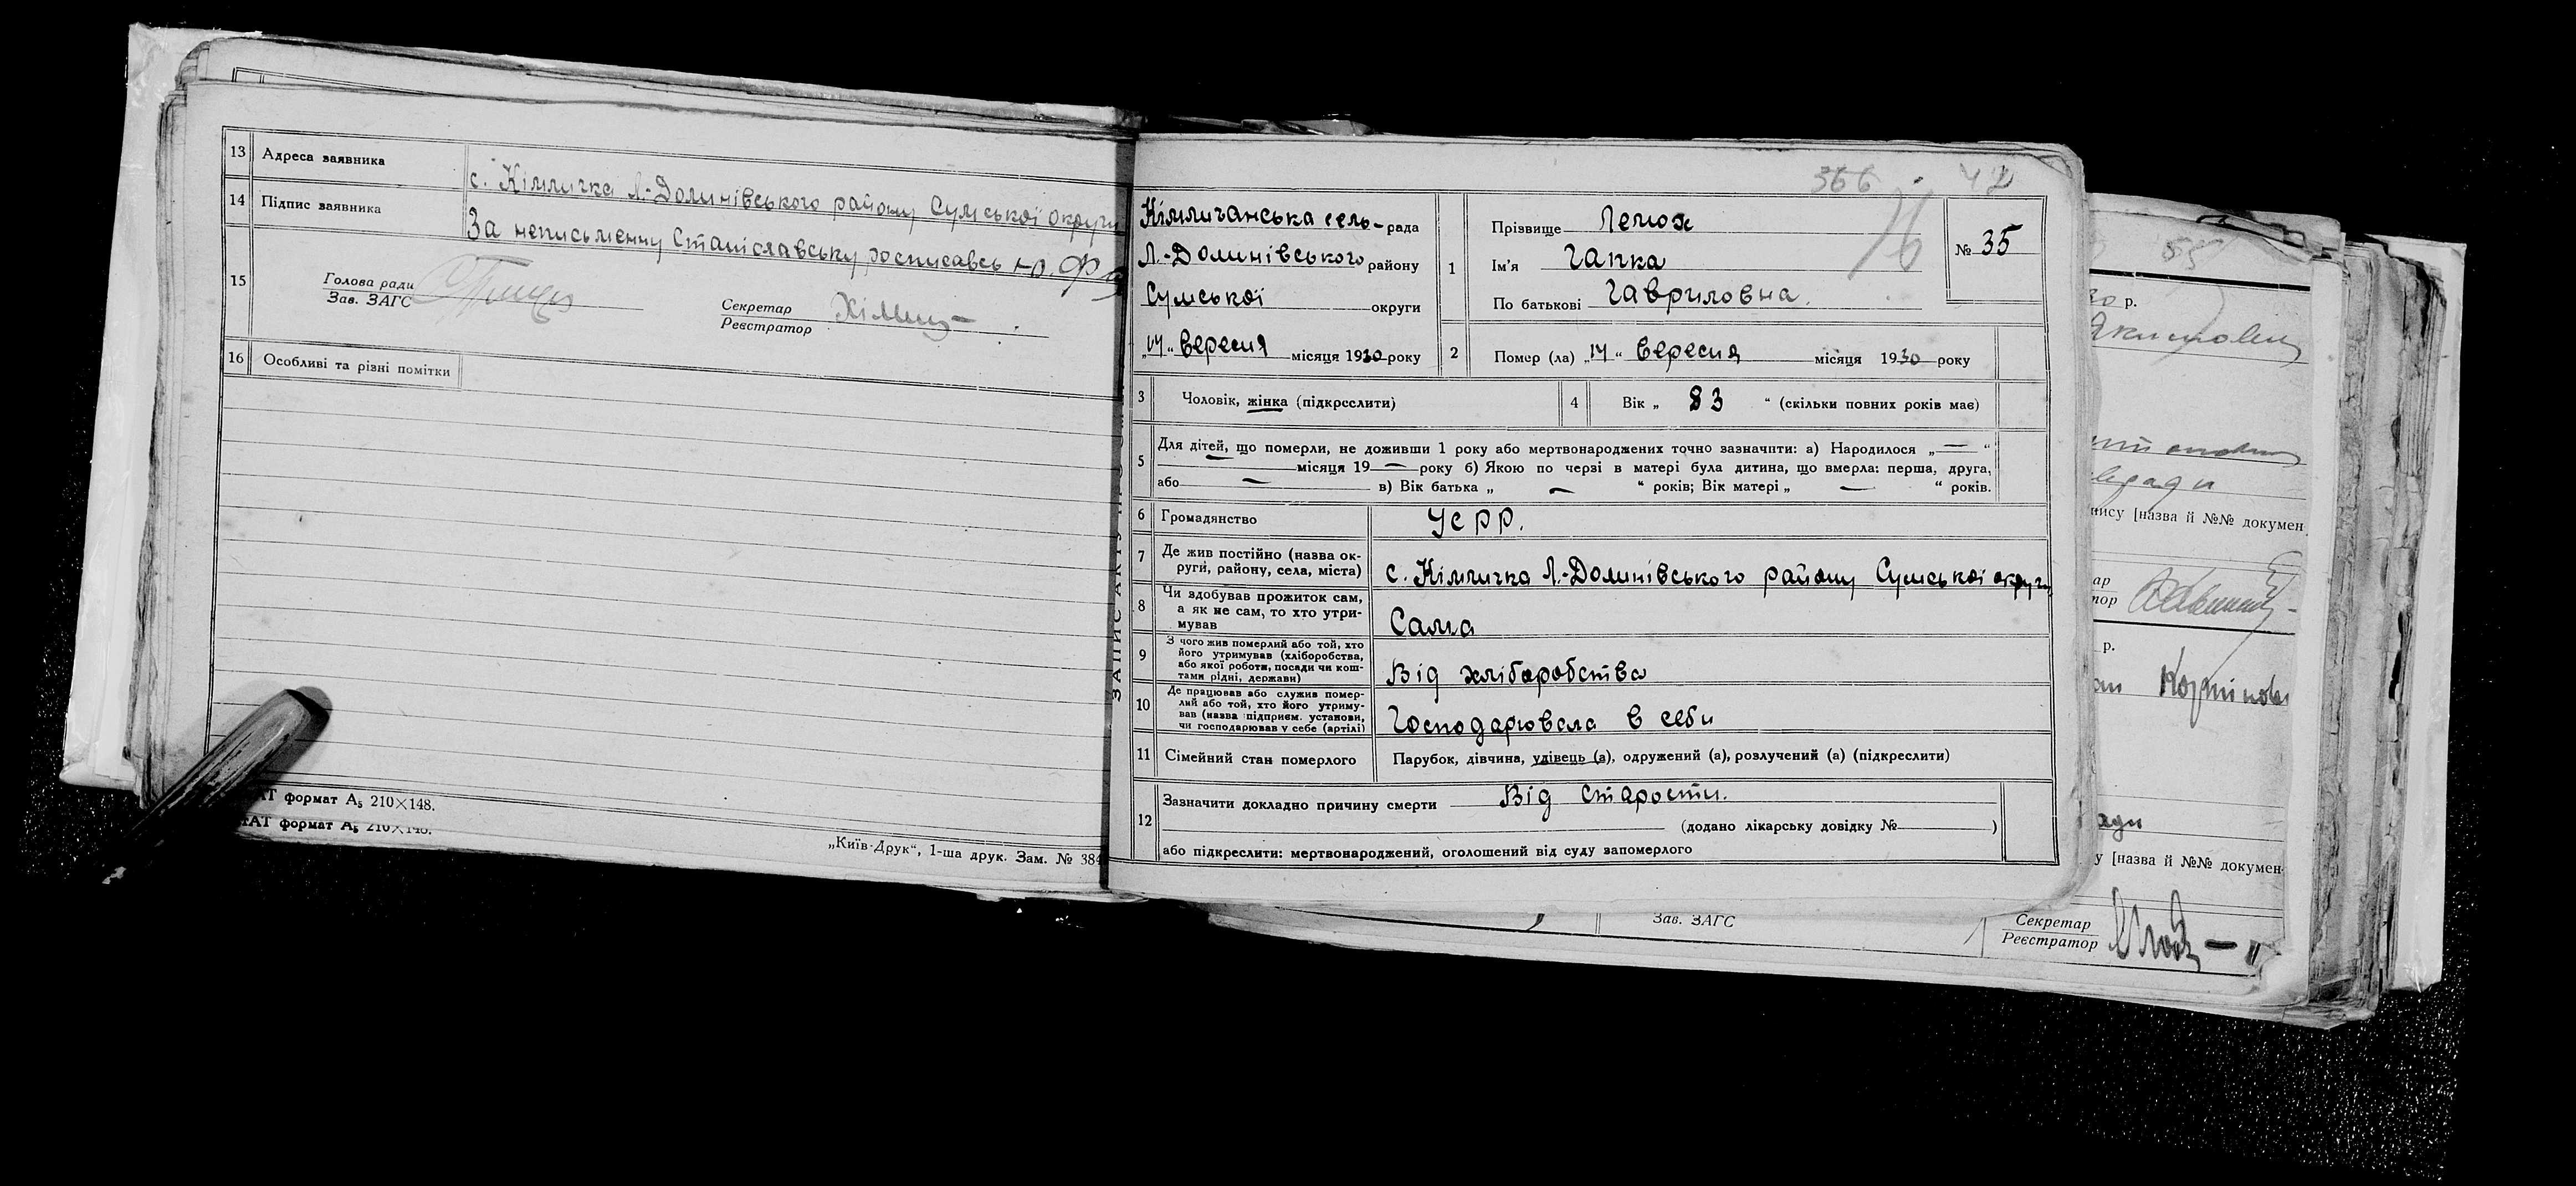 13 Адреса заявника с. Кімличка Л.-Долинівського району Сумської округи
14 Підпис заявника За неписьменну Станіславську росписавсь Ю.
15 Голова ради
Зав. ЗАГС
Секретар
Реєстратор
16 Особливі та різні помітки
АТ формат А5 210×148.
АТ формат А5 210×148.
„Київ-Друк“, 1-ша друк. Зам. № 384
366 42
Кімличанська сель-рада
Л.-Долинівського району
Сумської округи
„14“ вересня місяця 1930 року
1 Прізвище Лемох
Ім'я Гапка
По батькові Гавриловна.
№ 35
16
2 Помер (ла) „14“ вересня місяця 1930 року
3 Чоловік, жінка (підкреслити)
4 Вік „ 83 “ (скільки повних років має)
5 Для дітей, що померли, не доживши 1 року або мертвонароджених точно зазначити: а) Народилося „—“
— місяця 19— року б) Якою по черзі в матері була дитина, що вмерла: перша, друга,
або — в) Вік батька „ — “ років; Вік матері „ — “ років.
6 Громадянство УСРР.
7 Де жив постійно (назва ок-
руги, району, села, міста) с. Кімличка Л.-Долинівського району Сумської округи
8 Чи здобував прожиток сам,
а як не сам, то хто утри-
мував Сама
9 З чого жив померлий або той, хто
його утримував (хліборобства,
або якої роботи, посади чи кош-
тами рідні, держави) Від хліборобства
10 Де працював або служив помер-
лий або той, хто його утриму-
вав (назва підприєм. установи,
чи господарював у себе (артілі) Господарювала в себи
11 Сімейний стан померлого Парубок, дівчина, удівець (а), одружений (а), розлучений (а) (підкреслити)
12 Зазначити докладно причину смерти Від старости.
(додано лікарську довідку № )
або підкреслити: мертвонароджений, оголошений від суду запомерлого
ЗАПИС АКТУ ПРО
30 р.
пису [назва й №№ докумен
ар
тор
р.
ади
у [назва й №№ докумен-
Зав. ЗАГС
Секретар
Реєстратор